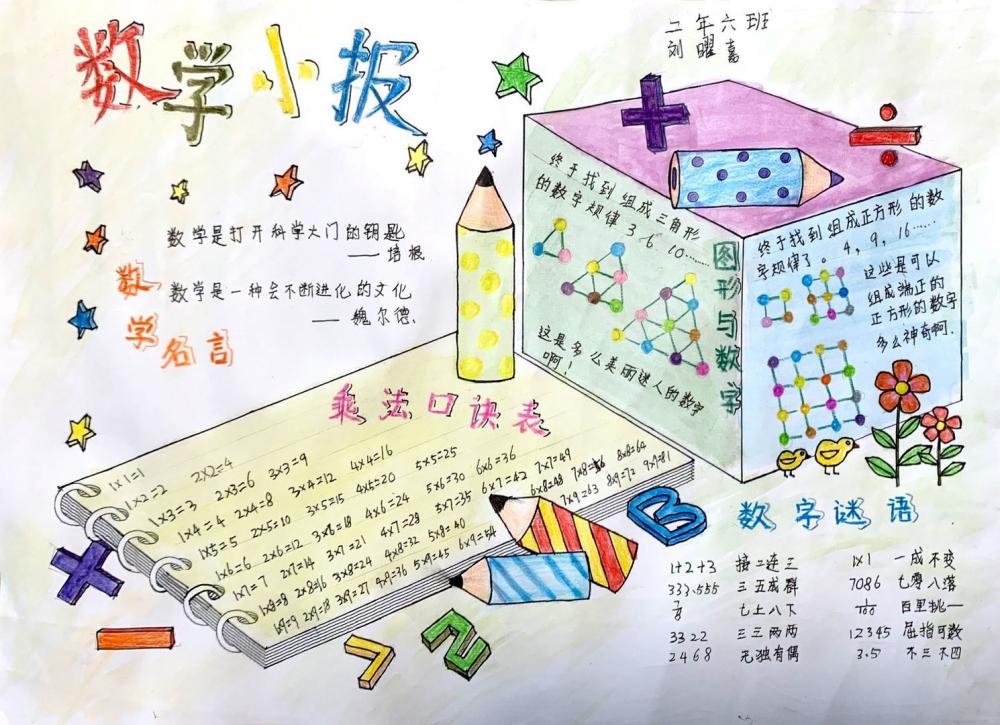 数学小报
二年六班
刘曜嘉
数学是打开科学大门的钥匙
——培根
数学是一种会不断进化的文化
——魏尔德.
数学名言
终于找到组成三角形
的数字规律 3 6 10……
这是多么美丽迷人的数字
啊!
图形与数字
终于找到组成正方形的数
字规律了。4, 9, 16……
这些是可以
组成端正的
正方形的数字
多么神奇啊.
乘法口诀表
1×1=1
1×2=2 2×2=4
1×3=3 2×3=6 3×3=9
1×4=4 2×4=8 3×4=12 4×4=16
1×5=5 2×5=10 3×5=15 4×5=20 5×5=25
1×6=6 2×6=12 3×6=18 4×6=24 5×6=30 6×6=36
1×7=7 2×7=14 3×7=21 4×7=28 5×7=35 6×7=42 7×7=49
1×8=8 2×8=16 3×8=24 4×8=32 5×8=40 6×8=48 7×8=56 8×8=64
1×9=9 2×9=18 3×9=27 4×9=36 5×9=45 6×9=54 7×9=63 8×9=72 9×9=81
B
7
2
数字谜语
1+2+3 接二连三 1×1 一成不变
333.555 三五成群 7086 七零八落
7/8 七上八下 1/100 百里挑一
3322 三三两两 12345 屈指可数
2468 无独有偶 3.5 不三不四